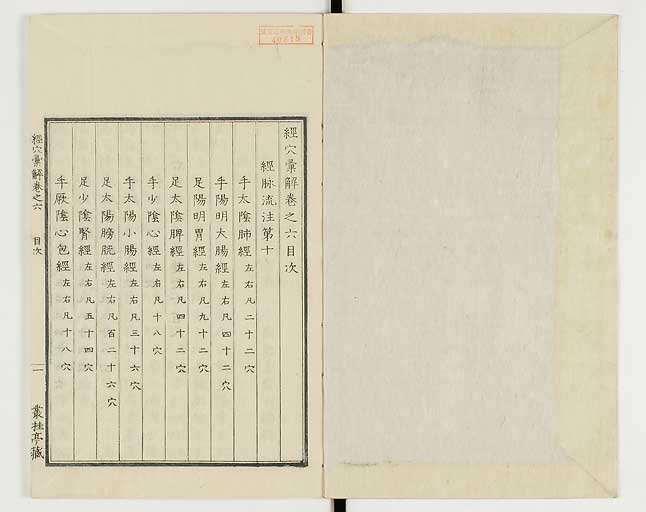 經穴彙解卷之六目次
經脉流注第十
手太陰肺經左右凡二十二穴
手陽明大腸經左右凡四十二穴
足陽明胃經左右凡九十二穴
足太陰脾經左右凡四十二穴
手少陰心經左右凡十八穴
手太陽小腸經左右凡三十六穴
足太陽膀胱經左右凡百二十六穴
足少陰腎經左右凡五十四穴
手厥陰心包經左右凡十八穴
經穴彙解卷之六 目次 一 叢桂亭藏
40819